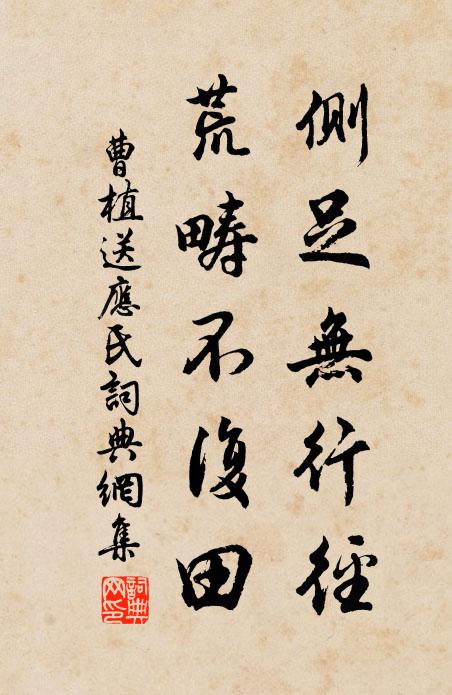 側足無行徑
荒疇不復田
曹植送應氏詞典網集
詞典
网印